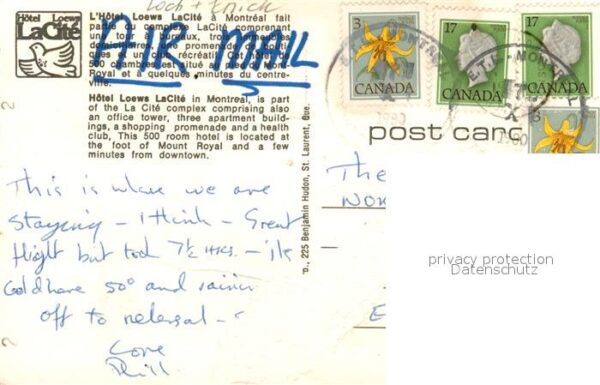 Hôtel Loews
LaCité
L'Hôtel Loews LaCité à Montréal fait
partie du complexe LaCité comprenant
un tour à bureaux, trois
une promenade
et un club récréatif
500 chambres situé au pied du Mont-
Royal et à quelques minutes du centre-
ville.
AIR MAIL
Hôtel Loews LaCité in Montreal, is part
of the La Cité complex comprising also
an office tower, three apartment build-
ings, a shopping promenade and a health
club, This 500 room hotel is located at
the foot of Mount Royal and a few
minutes from downtown.
This is where we are
staying – I think – Great
flight but took 7½ HRS. – it's
cold here 50° and rainin
off to rehersal –
Love
D., 225 Benjamin Hudon, St. Laurent, Que.
3
CANADA
17
CANADA
17
CANADA
3
MONT
1980
post card
The
privacy protection
Datenschutz
E